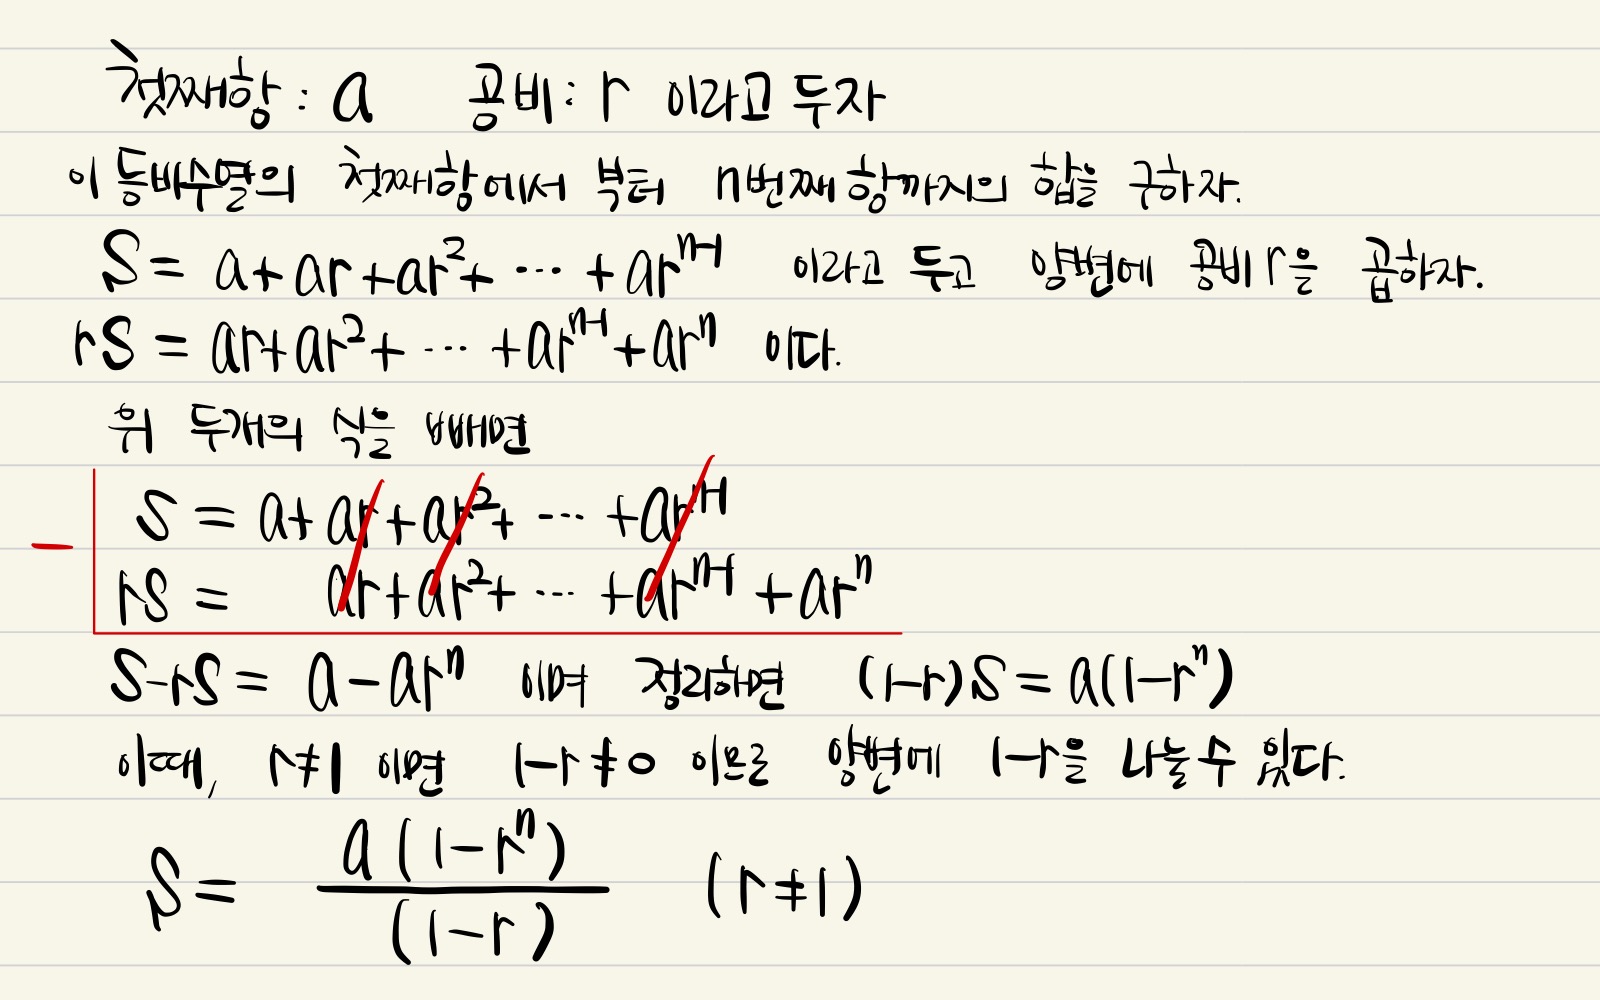 첫째항 : a 공비 : r 이라고 두자
이 등비수열의 첫째항에서 부터 n번째 항까지의 합을 구하자.
S = a + ar + ar² + ⋯ + arⁿ⁻¹ 이라고 두고 양변에 공비 r을 곱하자.
rS = ar + ar² + ⋯ + arⁿ⁻¹ + arⁿ 이다.
위 두개의 식을 빼면
S = a + ar + ar² + ⋯ + arⁿ⁻¹
−
rS = ar + ar² + ⋯ + arⁿ⁻¹ + arⁿ
S−rS = a − arⁿ 이며 정리하면 (1−r)S = a(1−rⁿ)
이때, r≠1 이면 1−r ≠ 0 이므로 양변에 1−r을 나눌수 있다.
S = a(1−rⁿ) / (1−r) (r≠1)